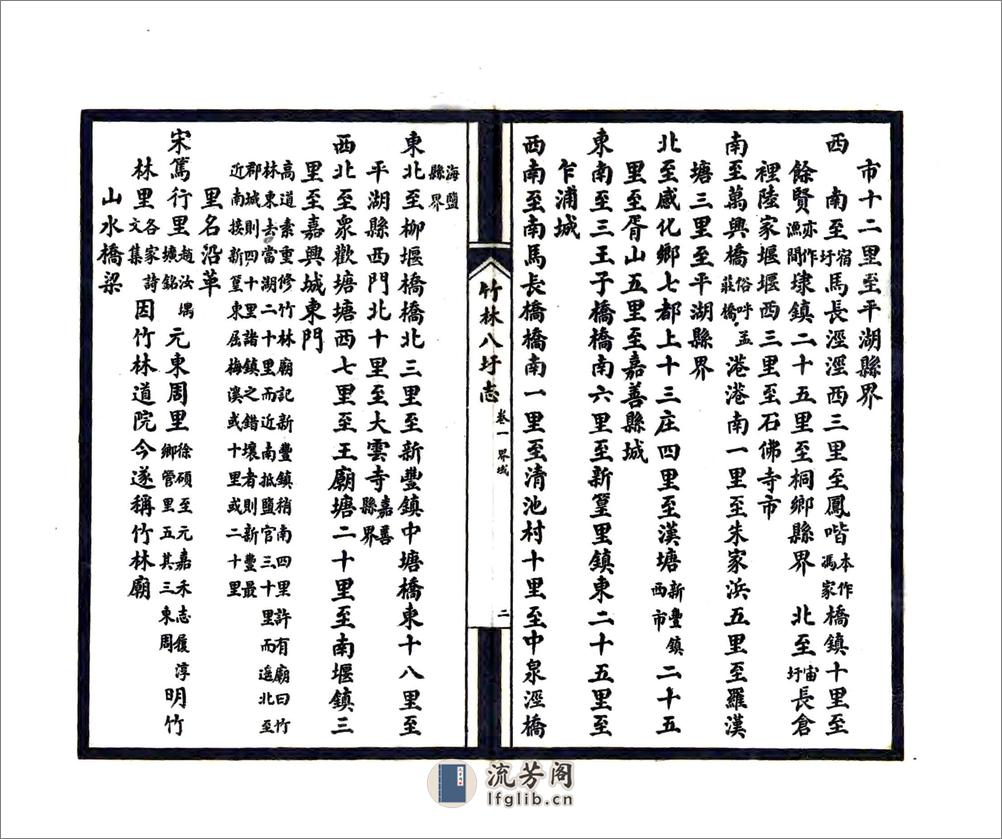 市十二里至平湖縣界
西　南至宿圩馬長涇涇西三里至鳳喈本作馮家橋鎮十里至
餘賢亦作漁間埭鎮二十五里至桐鄉縣界　北至宙圩長倉
裡陸家堰堰西三里至石佛寺市
南至萬興橋俗呼孟莊橋港港南一里至朱家浜五里至羅漢
塘三里至平湖縣界
北至感化鄉七都上十三庄四里至漢塘新豐鎮西市二十五
里至胥山五里至嘉善縣城
東南至三王子橋橋南六里至新篁里鎮東二十五里至
乍浦城
西南至南馬長橋橋南一里至清池村十里至中泉涇橋
竹林八圩志　卷一　界域　二
海鹽縣界
東北至柳堰橋橋北三里至新豐鎮中塘橋東十八里至
平湖縣西門北十里至大雲寺嘉善縣界
西北至泉歡塘塘西七里至王廟塘二十里至南堰鎮三
里至嘉興城東門
高道素重修竹林廟記新豐鎮稍南四里許有廟曰竹
林東去當湖二十里而近南抵鹽官三十里而遙北至
郡城則四十里諸鎮之錯壤者則新豐最
近南接新篁東屈梅溪或十里或二十里
里名沿革
宋篤行里趙汝堣壙銘元東周里徐碩至元嘉禾志履淳鄉管里五其三東周明竹
林里各家詩文集因竹林道院今遂稱竹林廟
山水橋梁
流芳阁
lfglib.cn